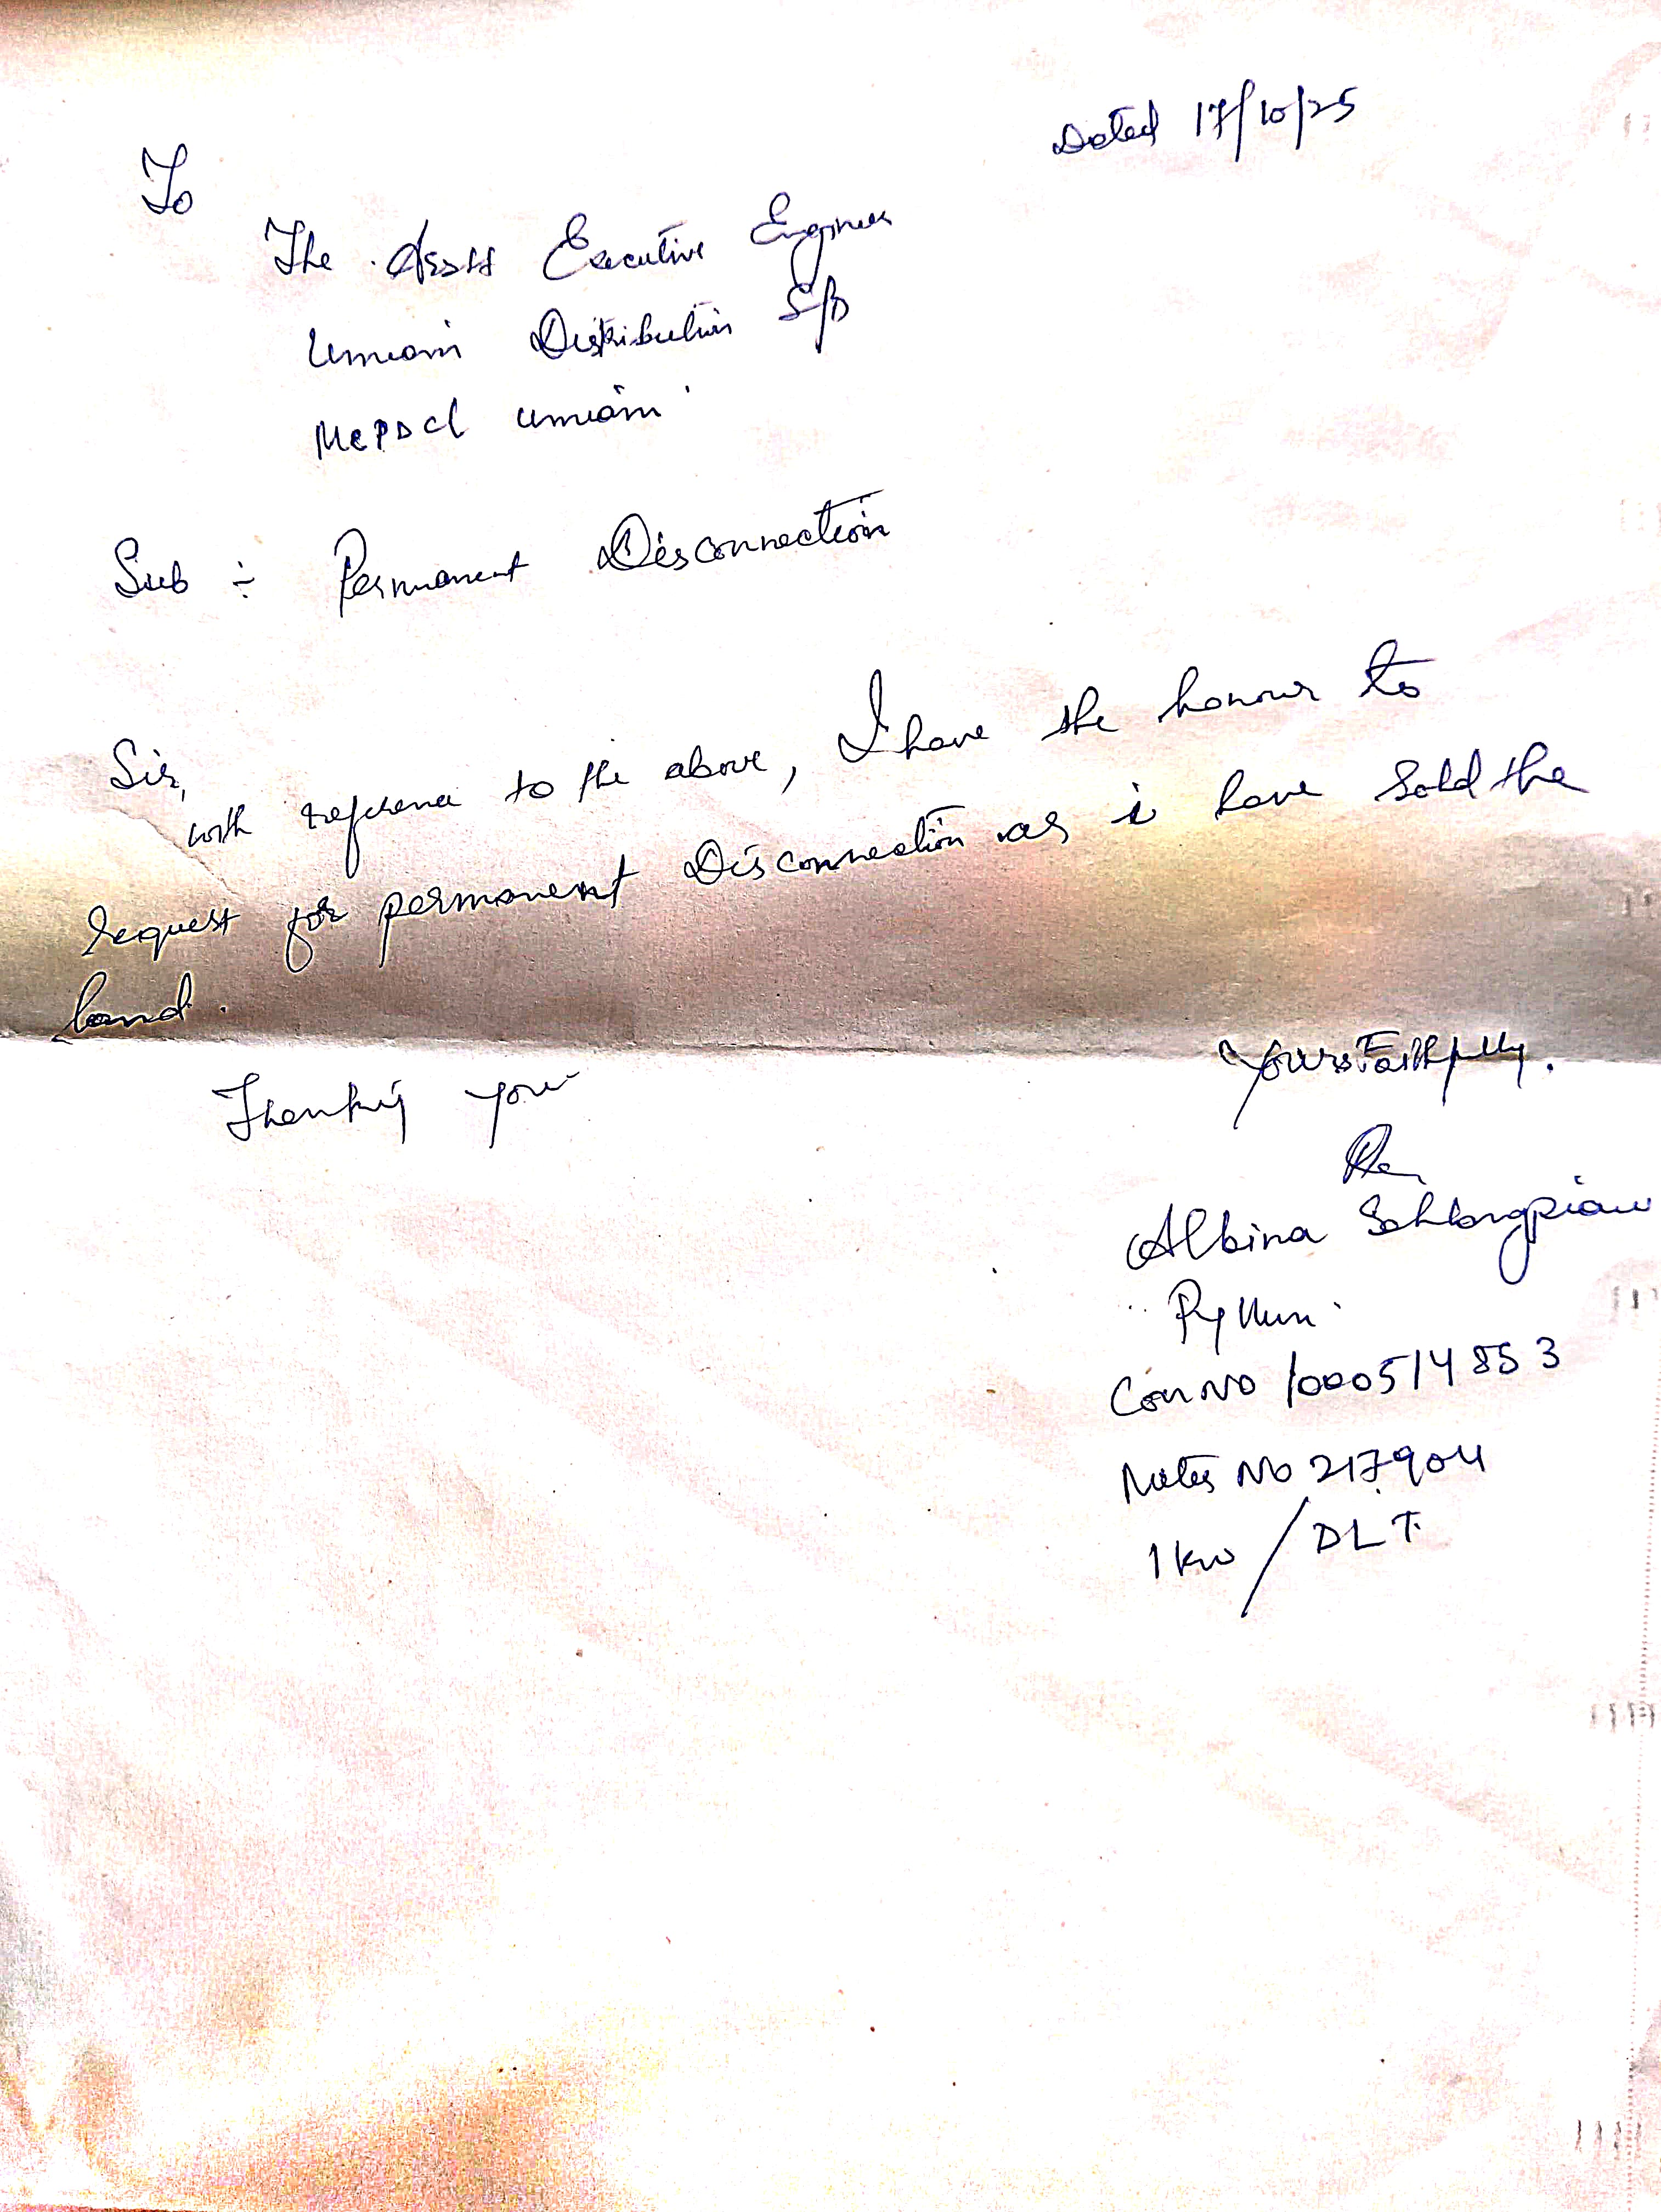 Dated 17/10/25
To
The Asstt Executive Engineer
Umiam Distribution S/D
MePDCl Umiam
Sub :- Permanent Disconnection
Sir,
with reference to the above, I have the honour to
request for permanent Disconnection as i have sold the
land.
Thanking you
Yours Faithfully.
Albina Sohlangpiaw
Pyllun
Con No 1000514853
Meter No 217904
1 kw / DLT